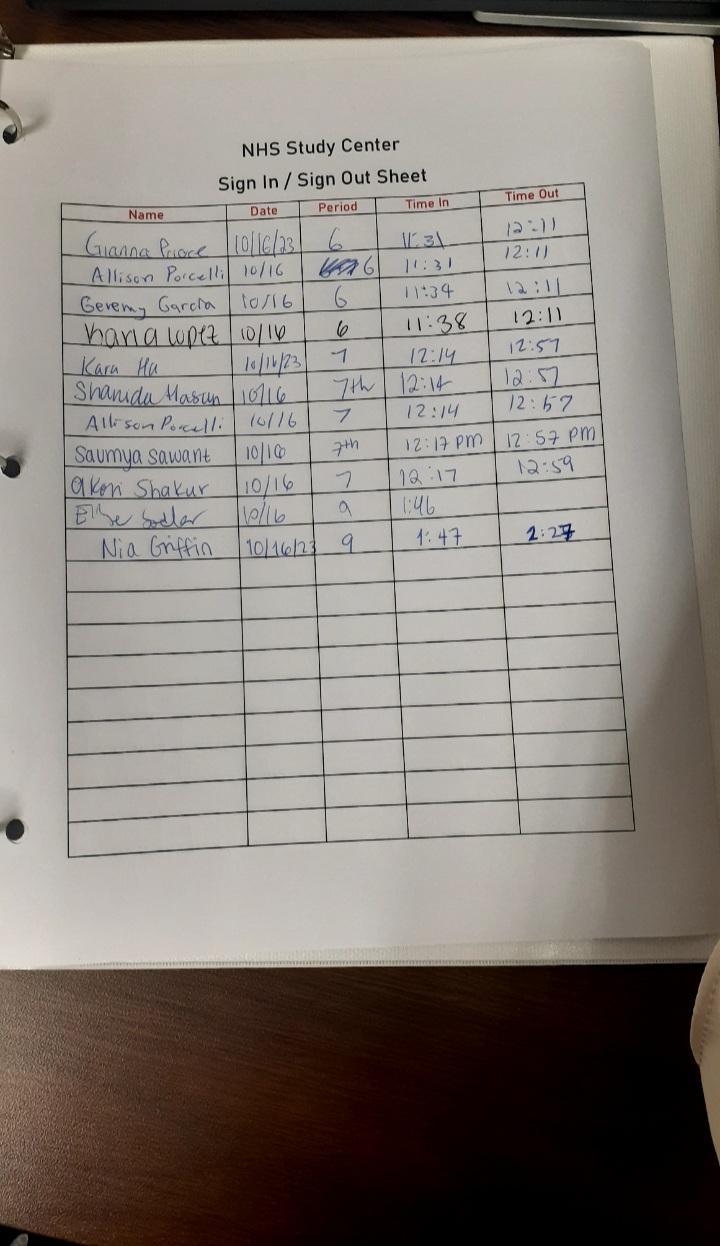 NHS Study Center
Sign In / Sign Out Sheet
Name Date Period Time In Time Out
Gianna 10/16/23 6 11:31 12:11
Allison Porcelli 10/16 6 11:31 12:11
Geremy Garcia 10/16 6 11:34 12:11
Karla Lopez 10/16 6 11:38 12:11
Kara Ha 10/16/23 7 12:14 12:57
Shanida 10/16 7th 12:14 12:57
Allison Porcelli 10/16 7 12:14 12:57
Saumya Sawant 10/16 7th 12:17 PM 12:57 PM
Akori Shakur 10/16 7 12:17 12:59
10/16 9 1:46
Nia Griffin 10/16/23 9 1:47 2:27